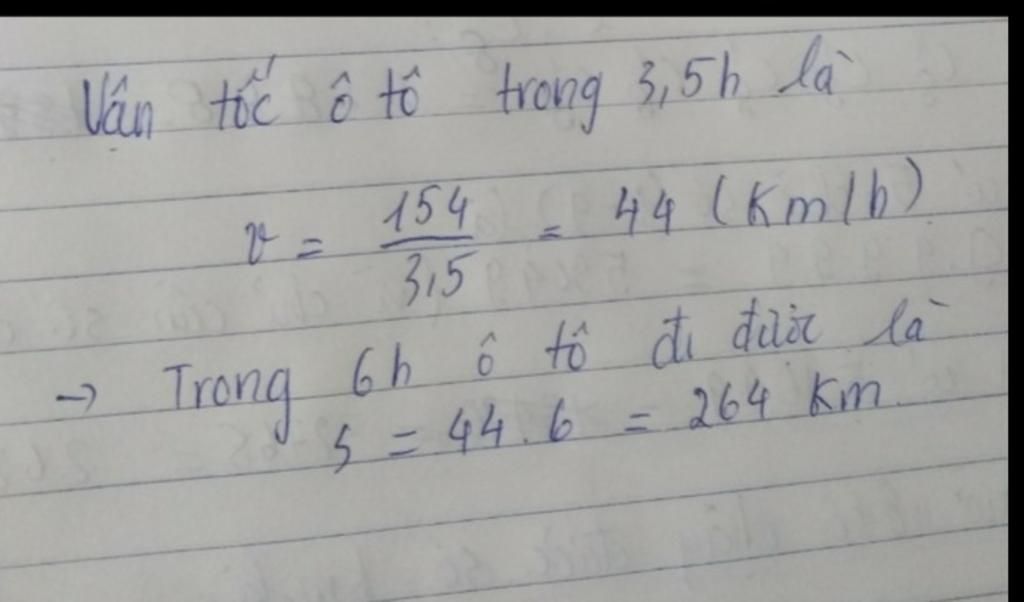 Vân tốc ô tô trong 3,5h là
v = 154/3,5 = 44 (Km/h)
→ Trong 6h ô tô đi được là
s = 44.6 = 264 Km.